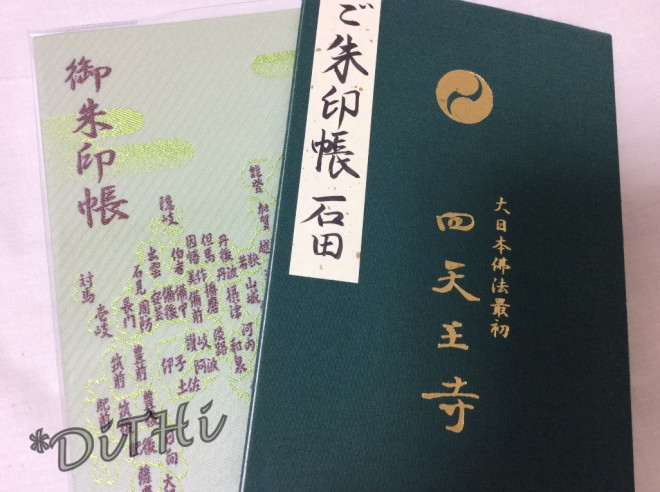 御朱印帳
能登
加賀
越
隠岐
出雲
石見
長門
周防
安芸
伯耆
備後
備中
因幡
美作
備前
但馬
播磨
丹後
丹波
摂津
山城
河内
和泉
淡路
讃岐
阿波
土佐
伊予
対馬
壱岐
筑前
豊前
豊後
肥前
日向
ご朱印帳 石田
大日本佛法最初
四天王寺
*DiTHi